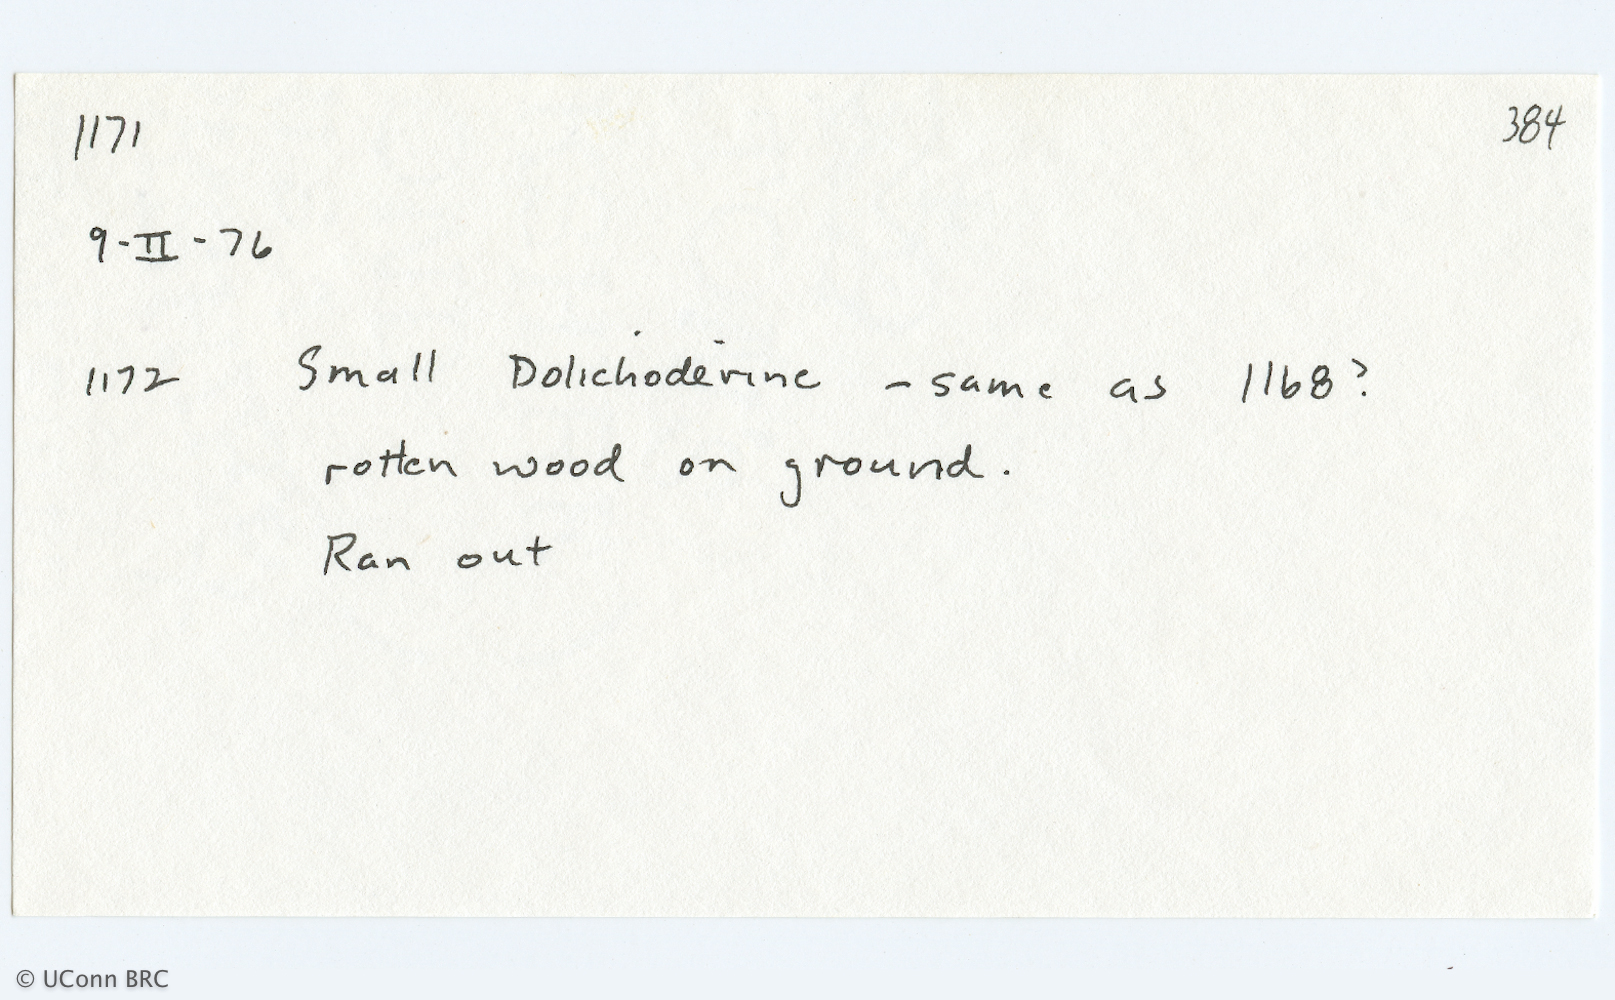 1171 384
9-II-76
1172 Small Dolichoderine - same as 1168?
rotten wood on ground.
Ran out
© UConn BRC